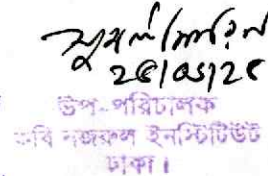 ২৫/০১/২৫
উপ-পরিচালক
কবি নজরুল ইনস্টিটিউট
ঢাকা।